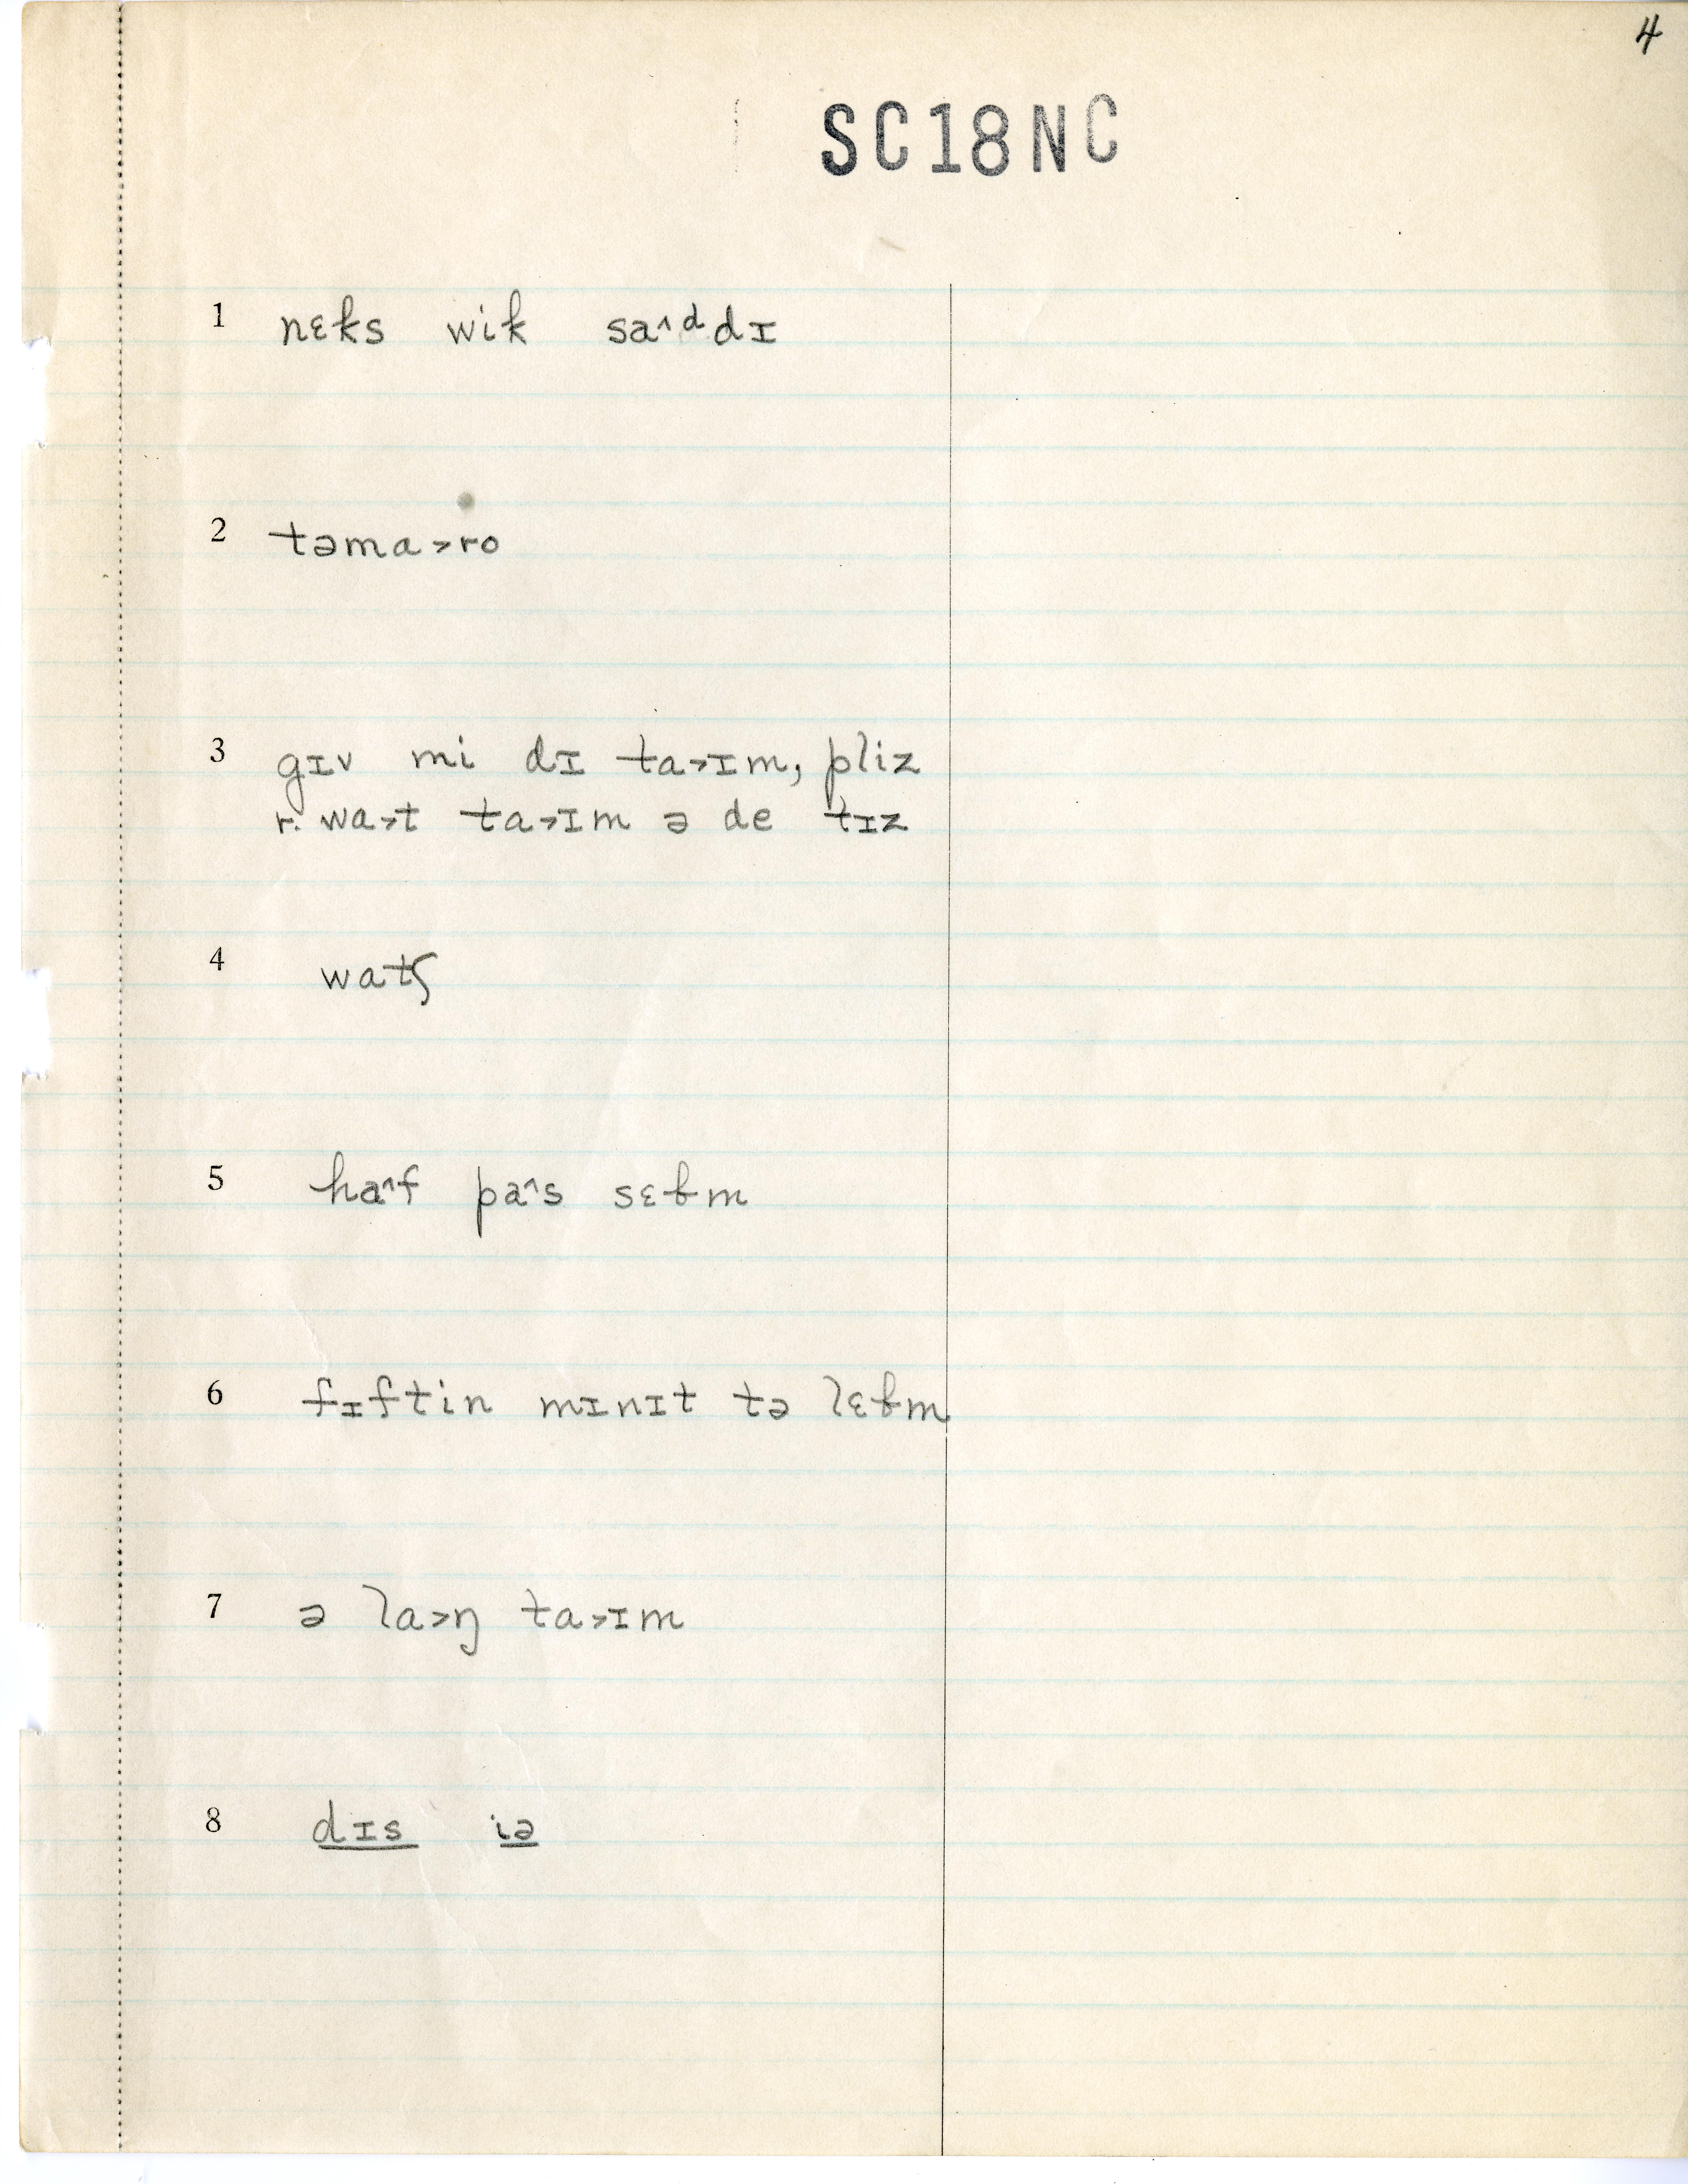 4
SC18NC
1 nɛks wik sa˄ᵈdɪ
2 təma˃ro
3 gɪv mi dɪ ta˃ɪm, pliz
r. wa˃t ta˃ɪm ə de tɪz
4 watʃ
5 ha˄f pa˄s sɛƀm
6 fɪftin mɪnɪt tə lɛƀm
7 ə la˃ŋ ta˃ɪm
8 dɪs iə